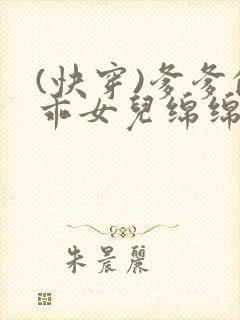 (快穿)爹爹
乖女兒綿綿
朱晨麗